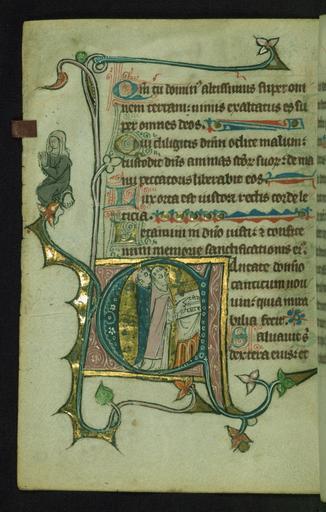 Qm tu domin' altissimus super om
nem terram: nimis exaltatus es su
per omnes deos.
Qui diligitis dnm odite malum:
custodit dns animas sctor suor: de ma
nu peccatoris liberabit eos.
Lux orta est iusto: et rectis corde le
ticia.
Letamini in dno iusti: et confite
mini memorie sanctificationis ei'.
Cantate domino
canticum nou
um: quia mira
bilia fecit.
Saluauit s'
dextera eius: et